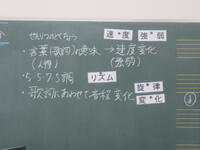 せんりつづくろう
速・度 強・弱
・言葉(歌詞)の意味 → 速度変化
(人物) (強弱)
・5575調 リズム
・歌詞にあわせて音程変化
旋・律
変・化